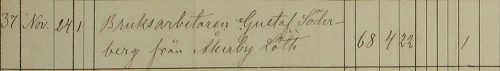 37 Nov. 24 1 Bruksarbetaren Gustaf Söder-
berg från Åkerby Rotë 68 4 22 1